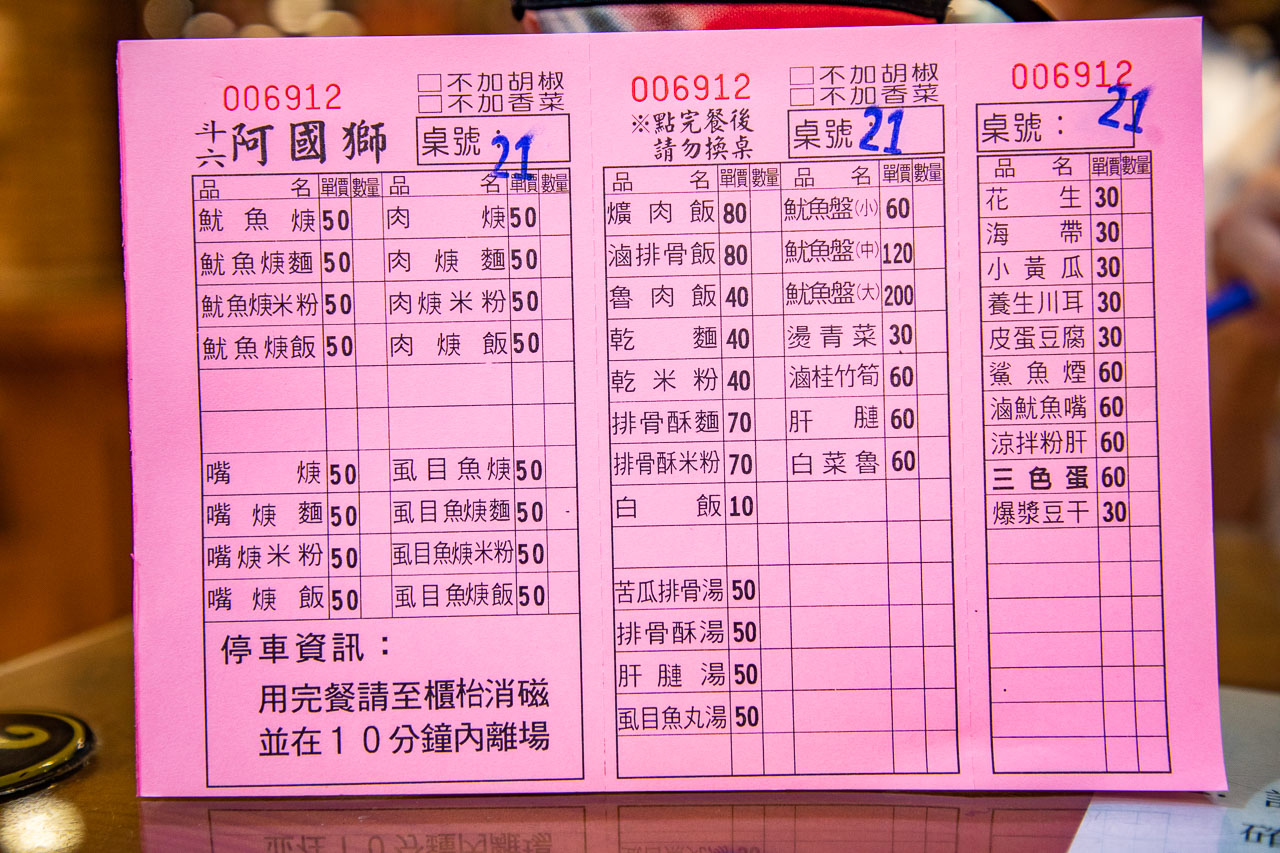 006912
□不加胡椒
□不加香菜
斗六 阿國獅
桌號：21
品名 單價 數量 品名 單價 數量
魷魚焿 50 肉焿 50
魷魚焿麵 50 肉焿麵 50
魷魚焿米粉 50 肉焿米粉 50
魷魚焿飯 50 肉焿飯 50
嘴焿 50 虱目魚焿 50
嘴焿麵 50 虱目魚焿麵 50
嘴焿米粉 50 虱目魚焿米粉 50
嘴焿飯 50 虱目魚焿飯 50
停車資訊：
用完餐請至櫃枱消磁
並在１０分鐘內離場
006912
※點完餐後
請勿換桌
□不加胡椒
□不加香菜
桌號：21
品名 單價 數量 品名 單價 數量
爌肉飯 80 魷魚盤(小) 60
滷排骨飯 80 魷魚盤(中) 120
魯肉飯 40 魷魚盤(大) 200
乾麵 40 燙青菜 30
乾米粉 40 滷桂竹筍 60
排骨酥麵 70 肝膥 60
排骨酥米粉 70 白菜魯 60
白飯 10
苦瓜排骨湯 50
排骨酥湯 50
肝膥湯 50
虱目魚丸湯 50
006912
桌號：21
品名 單價 數量
花生 30
海帶 30
小黃瓜 30
養生川耳 30
皮蛋豆腐 30
鯊魚煙 60
滷魷魚嘴 60
涼拌粉肝 60
三色蛋 60
爆漿豆干 30